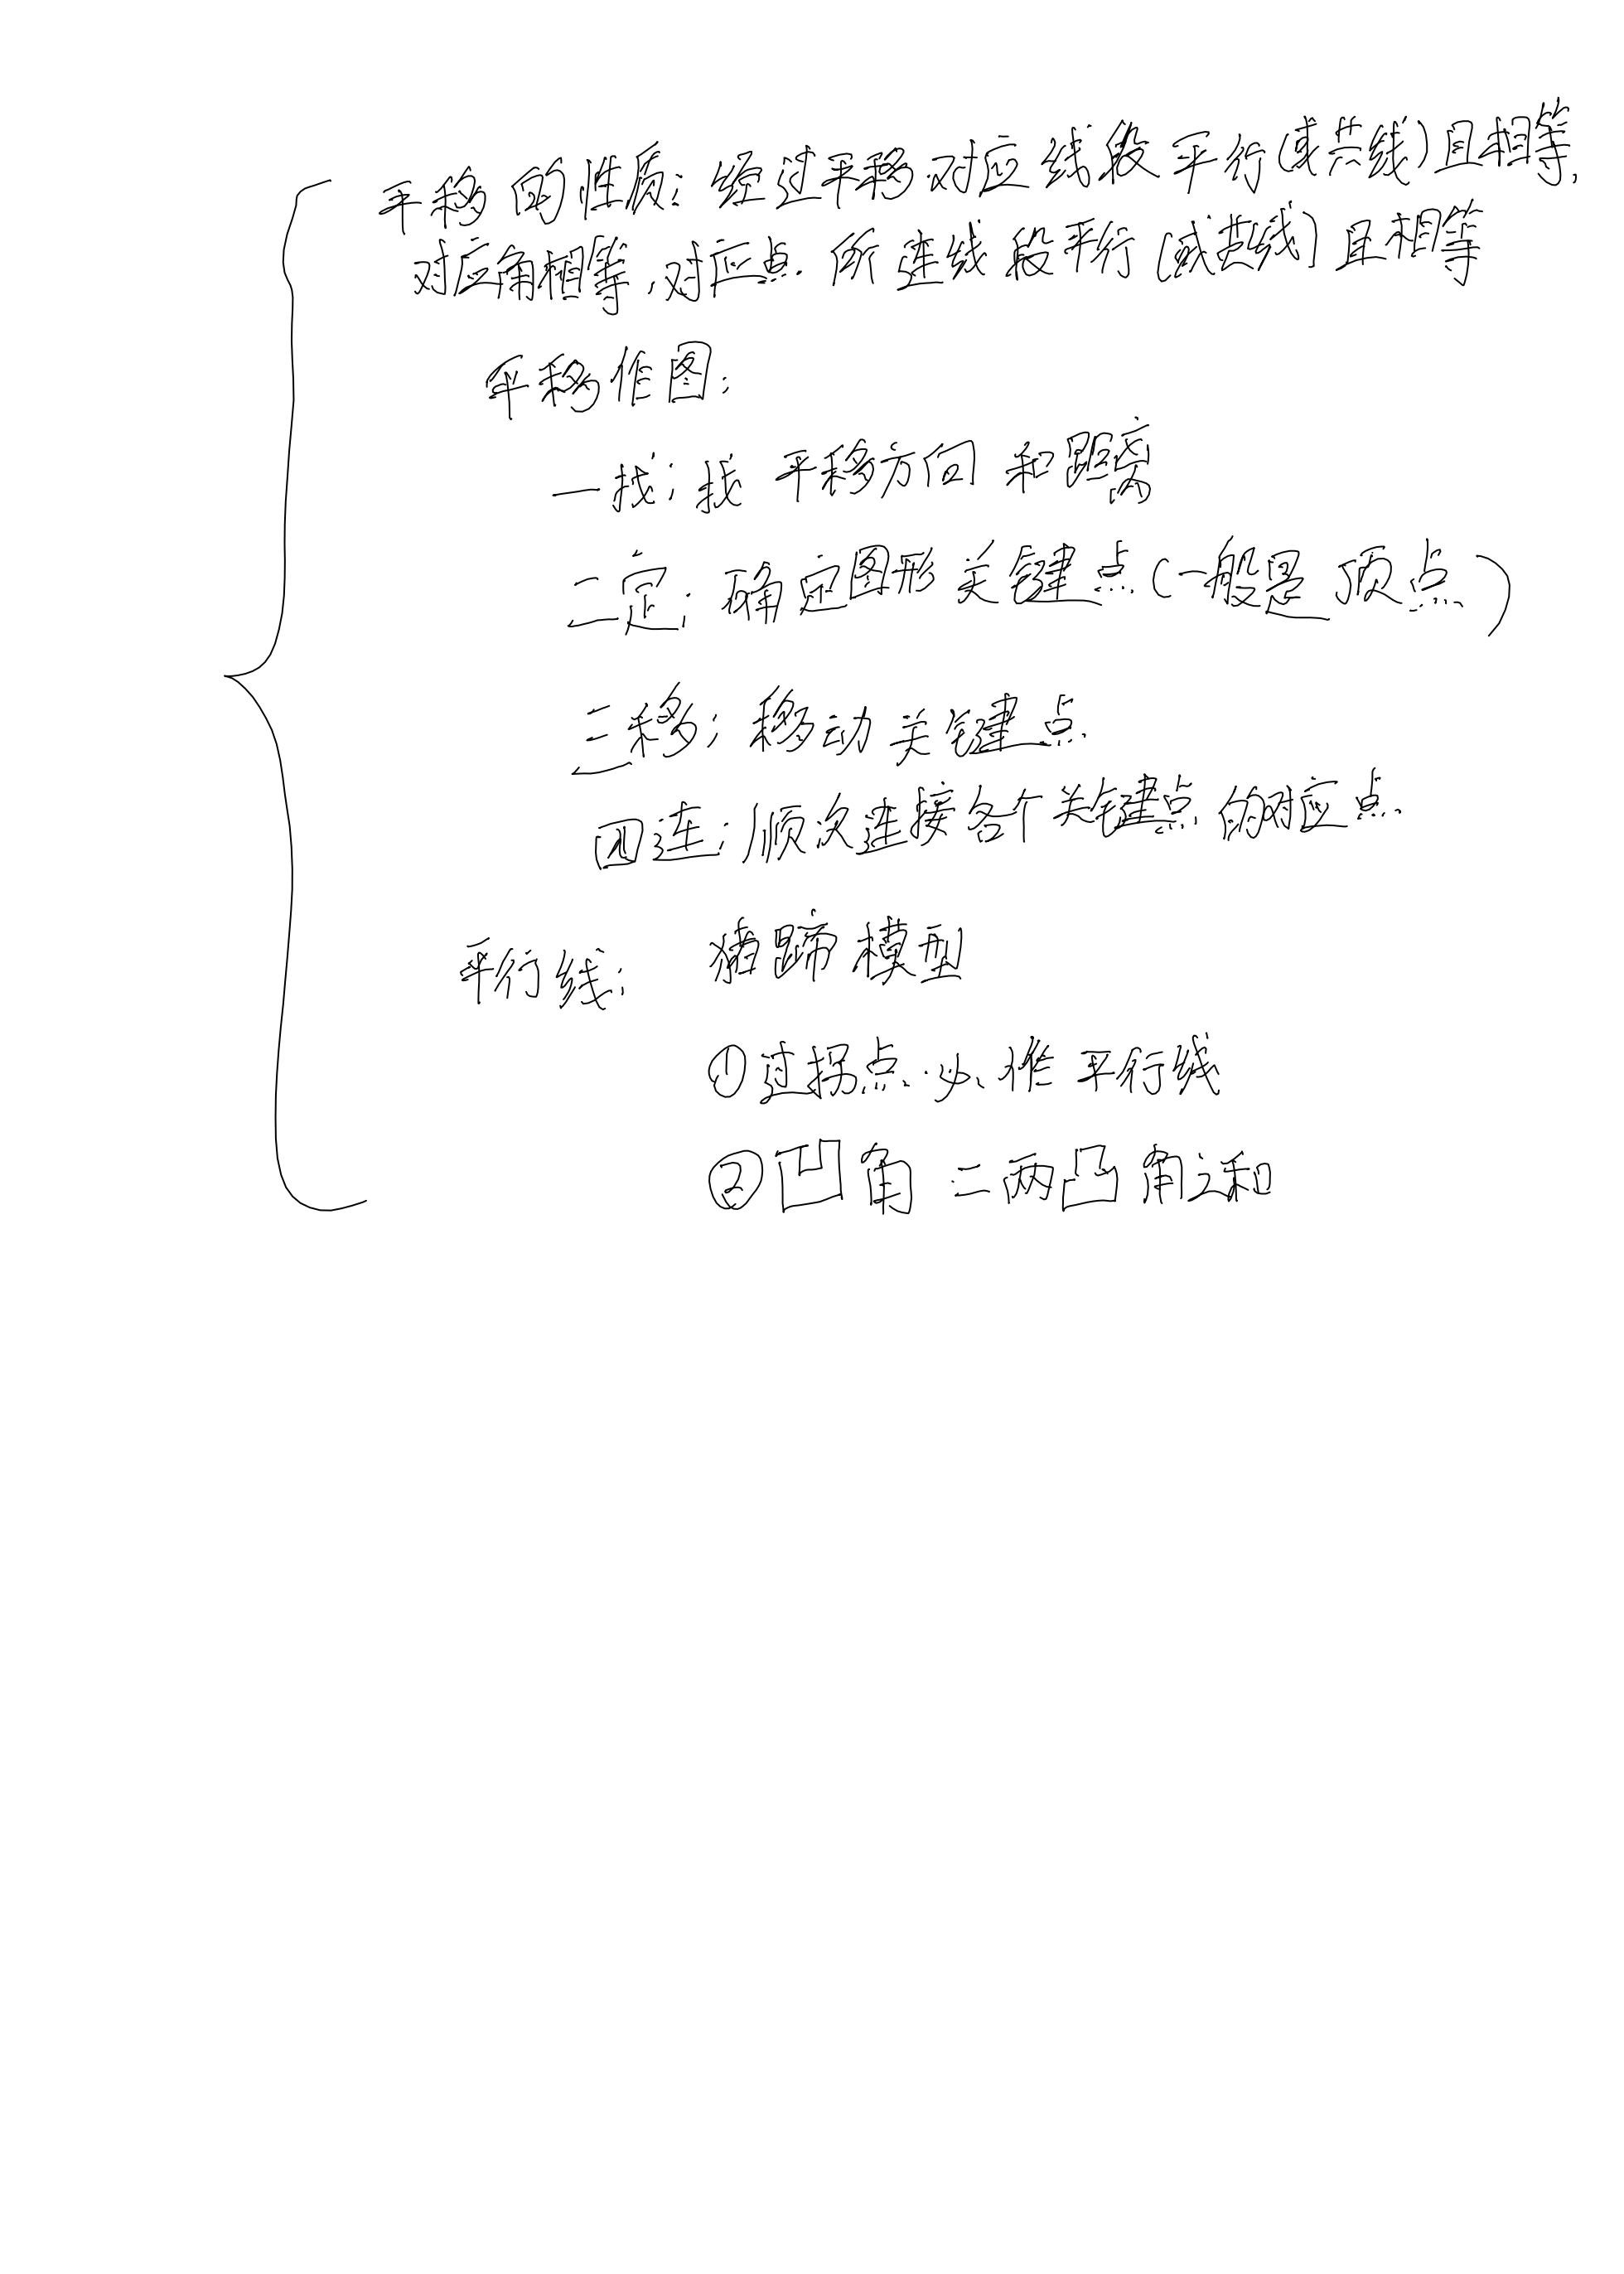 平移的性质:经过平移.对应线段平行(或共线)且相等,
对应角相等,对应点.所连线段平行(或共线)且相等
平移作图:
一找:找平移方向和距离
二定:确定图形关键点(一般是顶点)
三移:移动关键点
四连:顺次连接各个关键点的对应点.
平行线: 猪蹄模型
①过拐点必作平行线
②凹角=两凸角之和